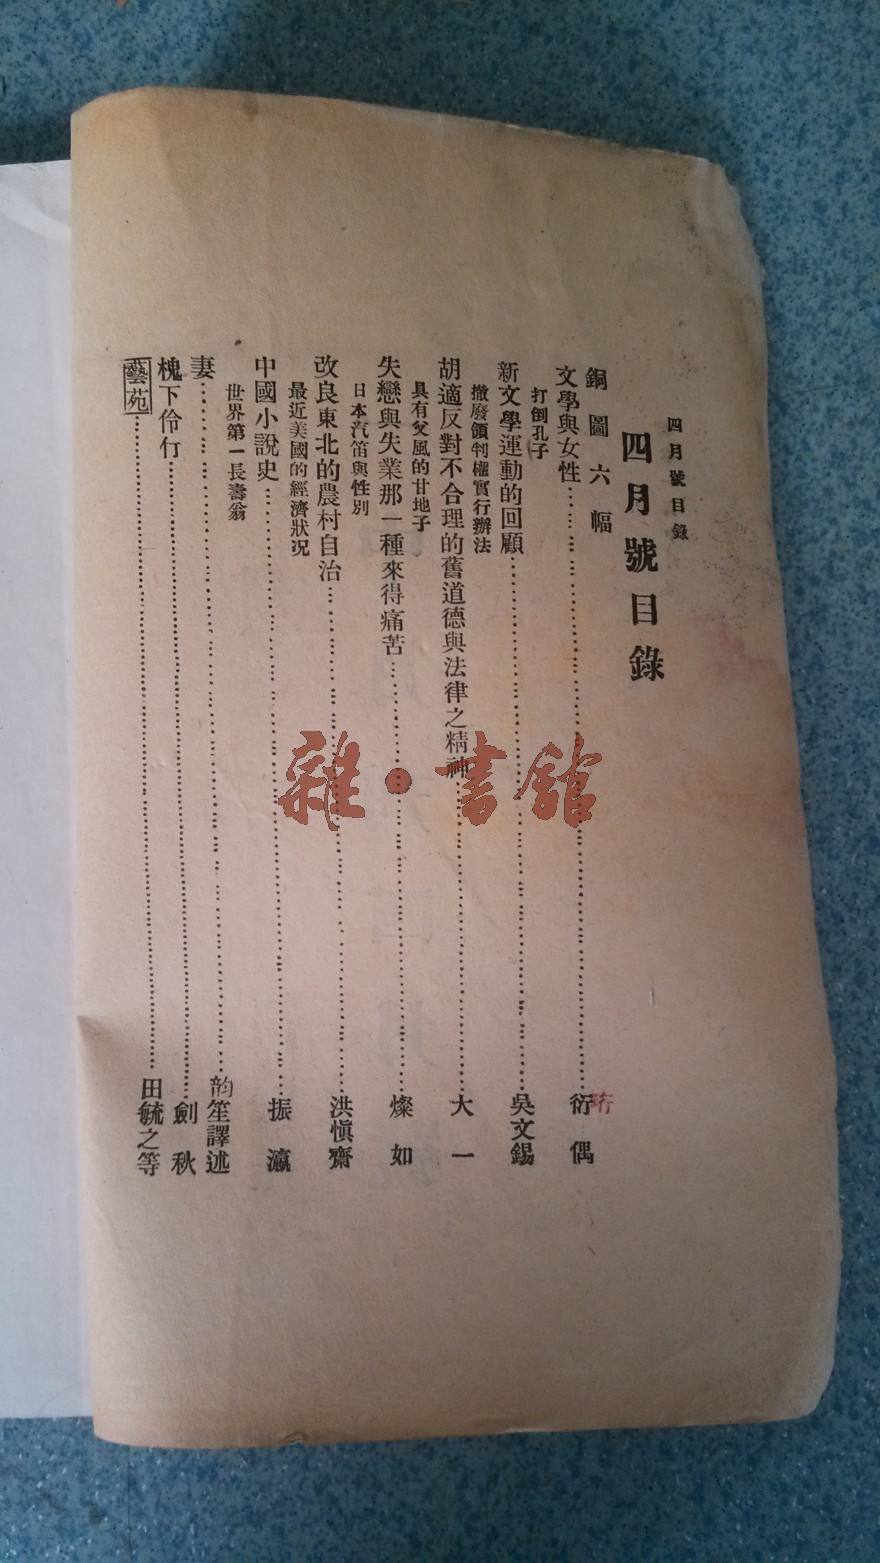 四月號目錄
四月號目錄
銅圖六幅
文學與女性……………………………………衍 偶
珩
打倒孔子
新文學運動的回顧……………………………………吳文錫
撤廢領判權實行辦法
胡適反對不合理的舊道德與法律之精神……………………………………大 一
具有父風的甘地子
失戀與失業那一種來得痛苦……………………………………燦 如
日本汽笛與性別
改良東北的農村自治……………………………………洪愼齋
最近美國的經濟狀況
中國小說史……………………………………振 瀛
世界第一長壽翁
妻……………………………………韵笙譯述
槐下伶仃……………………………………劍 秋
藝苑……………………………………田毓之等
雜·書館